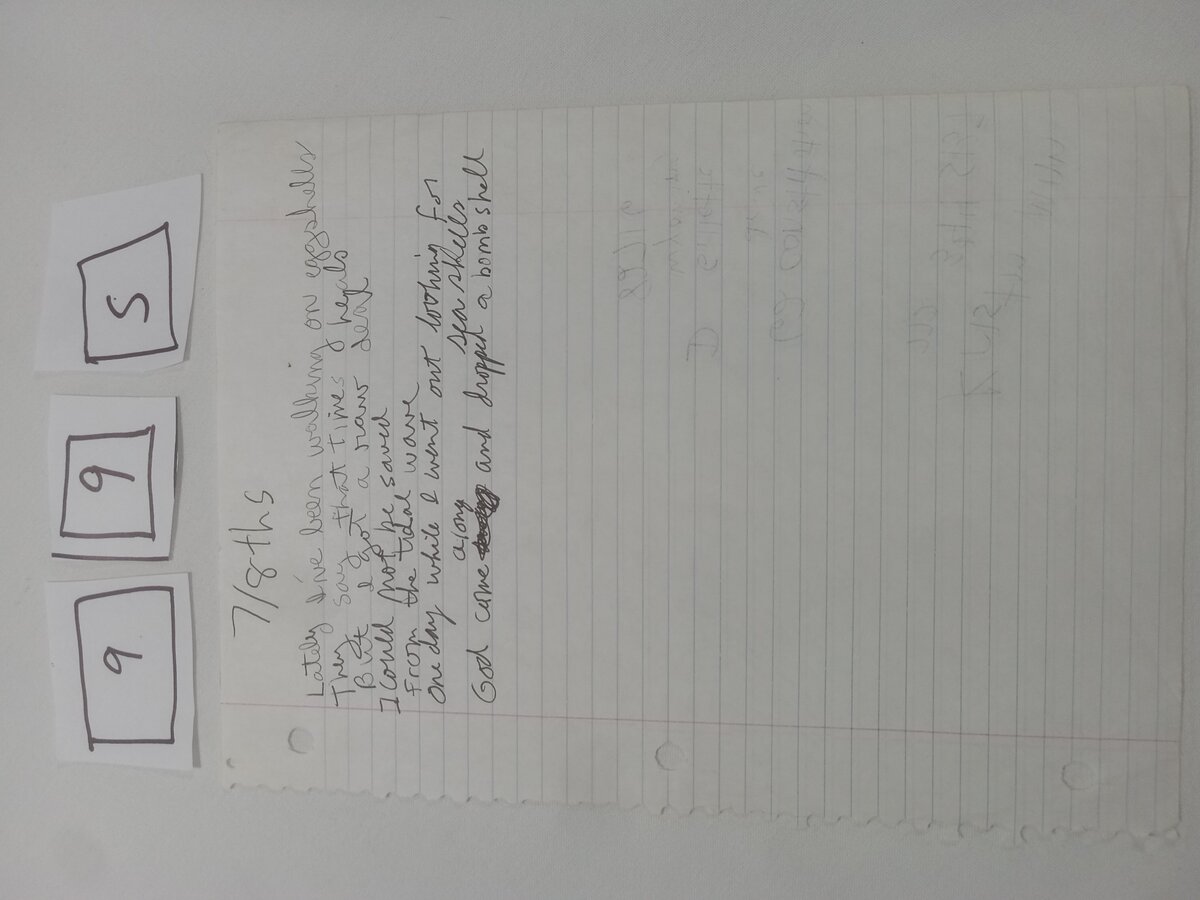 9 9 5
7/8ths
Lately I've been walking on eggshells
They say that times heals
But I got a raw deal
I could not be saved
From the tidal wave
One day while I went out looking for
sea shells
along
God came and dropped a bombshell